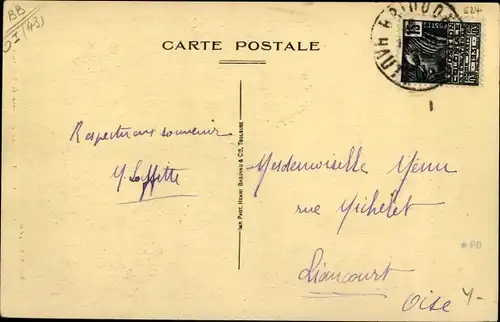 BB
(43)
524
CARTE POSTALE
POSTES
Respectueux souvenir
Y. Laffitte
IMP. PHOT. HENRI BASUYAU & Cie, TOULOUSE
Mesdemoiselle
rue Michelet
Liancourt
Oise
*PD